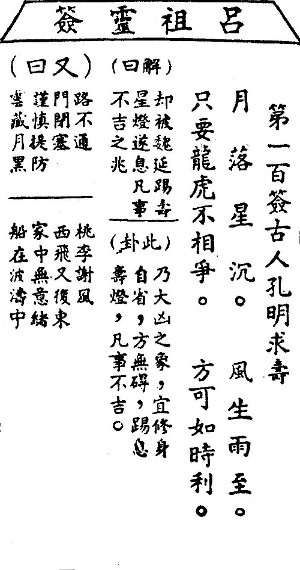 呂祖靈簽
第一百簽古人孔明求壽
月落星沉。風生雨至。
只要龍虎不相爭。方可如時利。
(解曰)
却被魏延踢壽
星燈遂息凡事
不吉之兆
(此卦)
乃大凶之象,宜修身
自省,方無碍,踢息
壽燈,凡事不吉。
(又曰)
路不通
門閉塞
謹慎提防
雲藏月黑
桃李謝風
西飛又復東
家中無意緒
船在波濤中